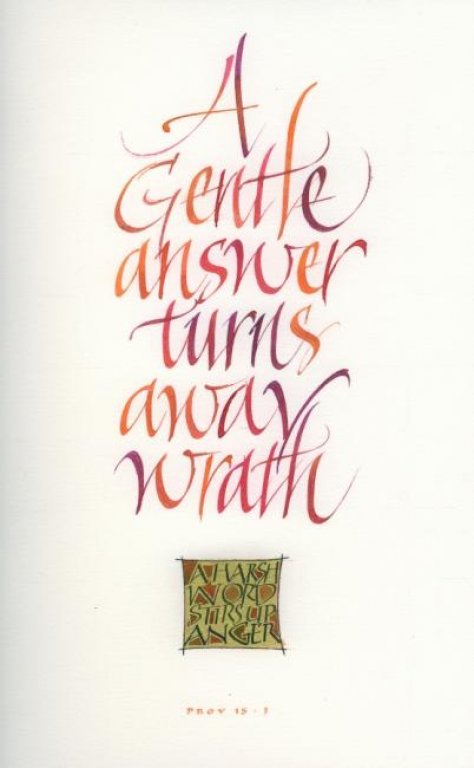 A
Gentle
answer
turns
away
wrath
A HARSH
WORD
STIRS UP
ANGER
PROV 15 · 1